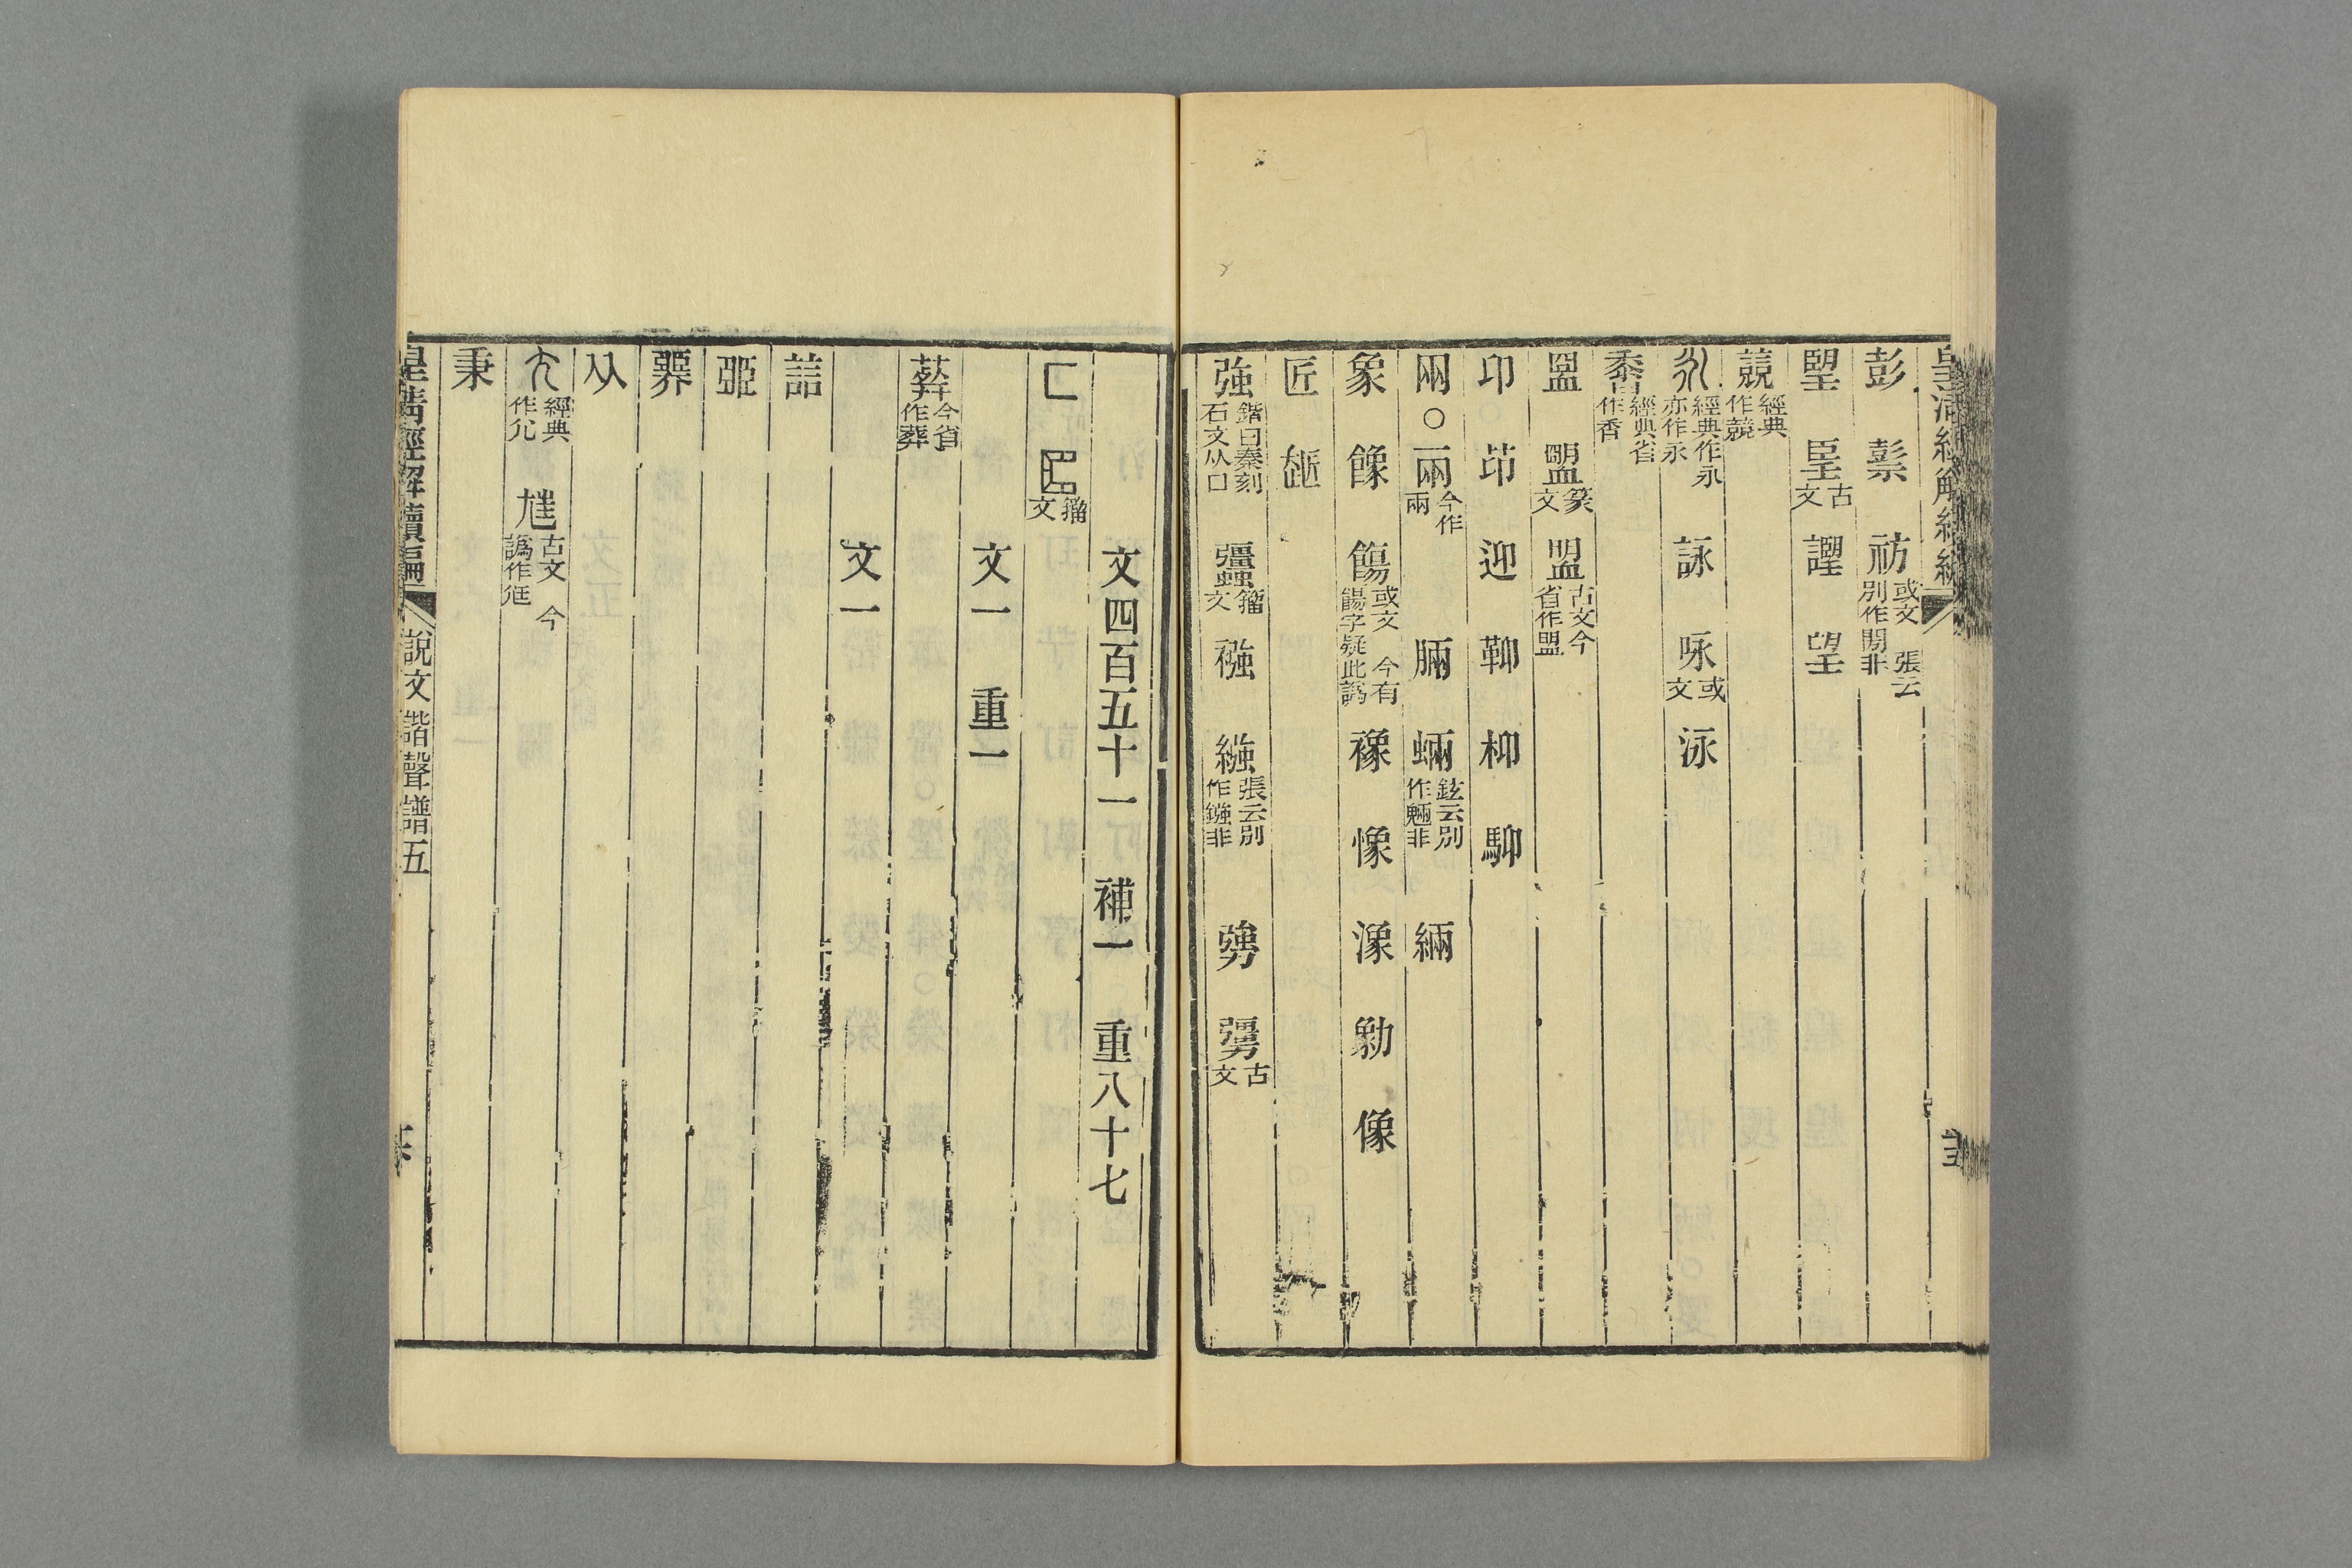 皇清經解續編
彭 𥛱 祊或文 張云別作閍非
朢 𦣠古文 謽 望
競經典作競
永經典作永亦作永 詠 咏或文 泳
香經典省作香
盟 盟篆文 盟古文今省作盟
卬 茚 迎 䩕 枊 駠
㒳○兩今作兩 脼 蜽鉉云別作魎非 緉
象 餯 餳或文 今有餳字疑此譌 襐 愓 潒 勨 像
匠 𣂁
強鍇曰秦刻石文从口 𧖑籀文 襁 繈張云別作鏹非 勥 𠣊古文
文四百五十一 補一 重八十七
匚 𠥓籀文
文一 重一
葬今省作葬
文一
誩
弫
㔾
从
尣經典作尣 尪古文 今譌作尫
秉
皇清經解續編 說文諧聲譜五